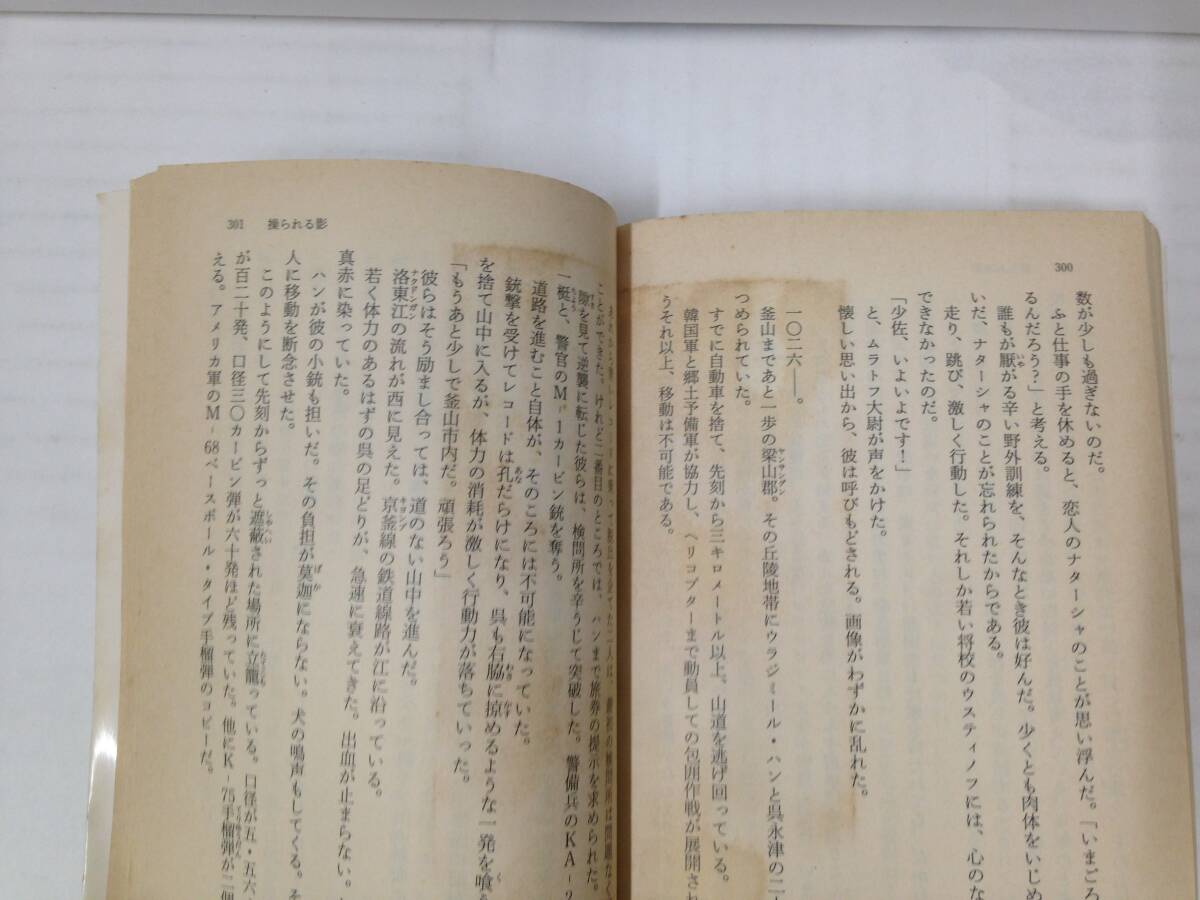 300
数が少しも過ぎないのだ。
ふと仕事の手を休めると、恋人のナターシャのことが思い浮んだ。「いまごろ
るんだろう?」と考える。
誰もが厭がる辛い野外訓練を、そんなとき彼は好んだ。少くとも肉体をいじめ
いだ、ナターシャのことが忘れられたからである。
走り、跳び、激しく行動した。それしか若い将校のウスティノフには、心のな
できなかったのだ。
「少佐、いよいよです!」
と、ムラトフ大尉が声をかけた。
懐しい思い出から、彼は呼びもどされる。画像がわずかに乱れた。
一〇二六――。
釜山まであと一歩の梁山郡。その丘陵地帯にウラジミール・ハンと呉永津の二
つめられていた。
すでに自動車を捨て、先刻から三キロメートル以上、山道を逃げ回っている。
韓国軍と郷土予備軍が協力し、ヘリコプターまで動員しての包囲作戦が展開され
うそれ以上、移動は不可能である。
301 操られる影
って脱出を企てた二人は、最初の検問所は問題なく
ことができた。けれど二番目のところでは、ハンまで旅券の提示を求められた。
隙を見て逆襲に転じた彼らは、検問所を辛うじて突破した。警備兵のKA-2
一梃と、警官のM-1カービン銃を奪う。
道路を進むこと自体が、そのころには不可能になっていた。
銃撃を受けてレコードは孔だらけになり、呉も右脇に掠めるような一発を喰
を捨て山中に入るが、体力の消耗が激しく行動力が落ちていった。
「もうあと少しで釜山市内だ。頑張ろう」
彼らはそう励まし合っては、道のない山中を進んだ。
洛東江の流れが西に見えた。京釜線の鉄道線路が江に沿っている。
若く体力のあるはずの呉の足どりが、急速に衰えてきた。出血が止まらない。
真赤に染っていた。
ハンが彼の小銃も担いだ。その負担が莫迦にならない。犬の鳴声もしてくる。そ
人に移動を断念させた。
このようにして先刻からずっと遮蔽された場所に立籠っている。口径が五・五六
が百二十発、口径三〇カービン弾が六十発ほど残っていた。他にK-75手榴弾が二個
える。アメリカ軍のM-68ベースボール・タイプ手榴弾のコピーだ。